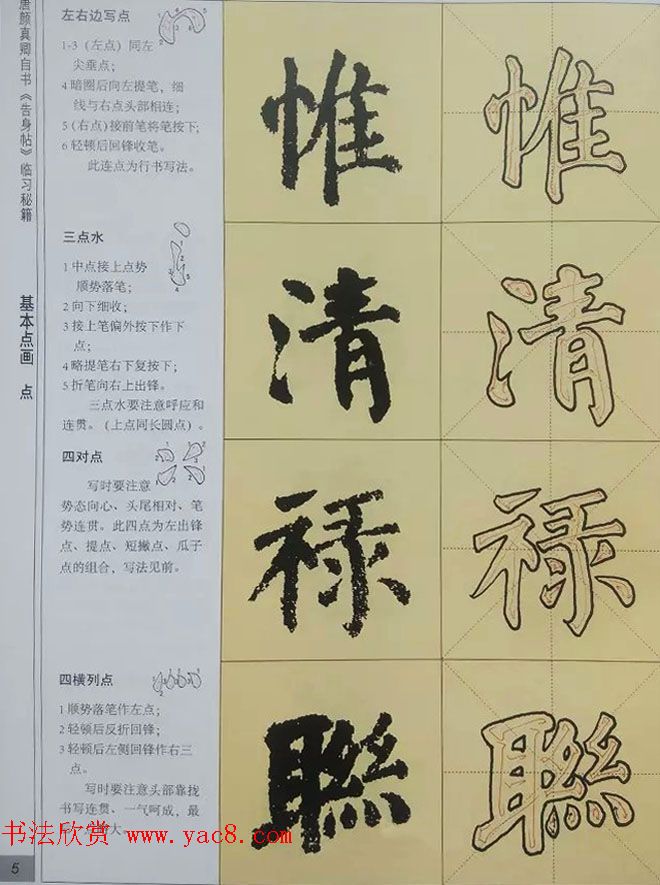 唐颜真卿自书《告身帖》临习秘籍
基本点画 点
左右边写点
1-3（左点）同左
尖垂点；
4 暗圈后向左提笔，细
线与右点头部相连；
5（右点）接前笔将笔按下；
6 轻顿后回锋收笔。
此连点为行书写法。
三点水
1 中点接上点势
顺势落笔；
2 向下细收；
3 接上笔偏外按下作下
点；
4 略提笔右下复按下；
5 折笔向右上出锋。
三点水要注意呼应和
连贯。（上点同长圆点）。
四对点
写时要注意
势态向心、头尾相对、笔
势连贯。此四点为左出锋
点、提点、短撇点、瓜子
点的组合，写法见前。
四横列点
1 顺势落笔作左点；
2 轻顿后反折回锋；
3 轻顿后左侧回锋作右三
点。
写时要注意头部靠拢
书写连贯、一气呵成，最
大。
惟 惟
清 清
禄 禄
聯 聯
书法欣赏 www.yac8.com
5